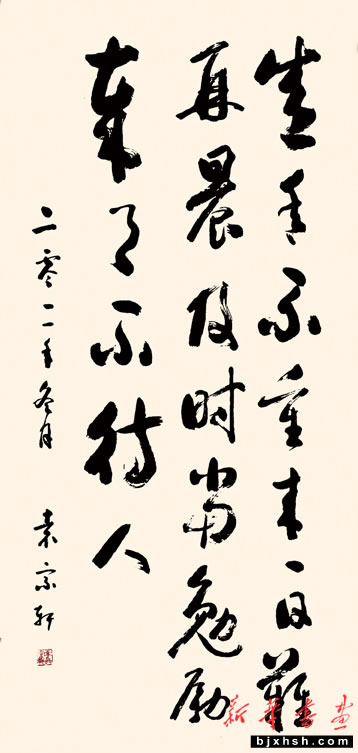 盛年不重来一日難
再晨及时当勉励
歲月不待人
二零一一年冬月
袁宗轩
新华书画
bjxhsh.com